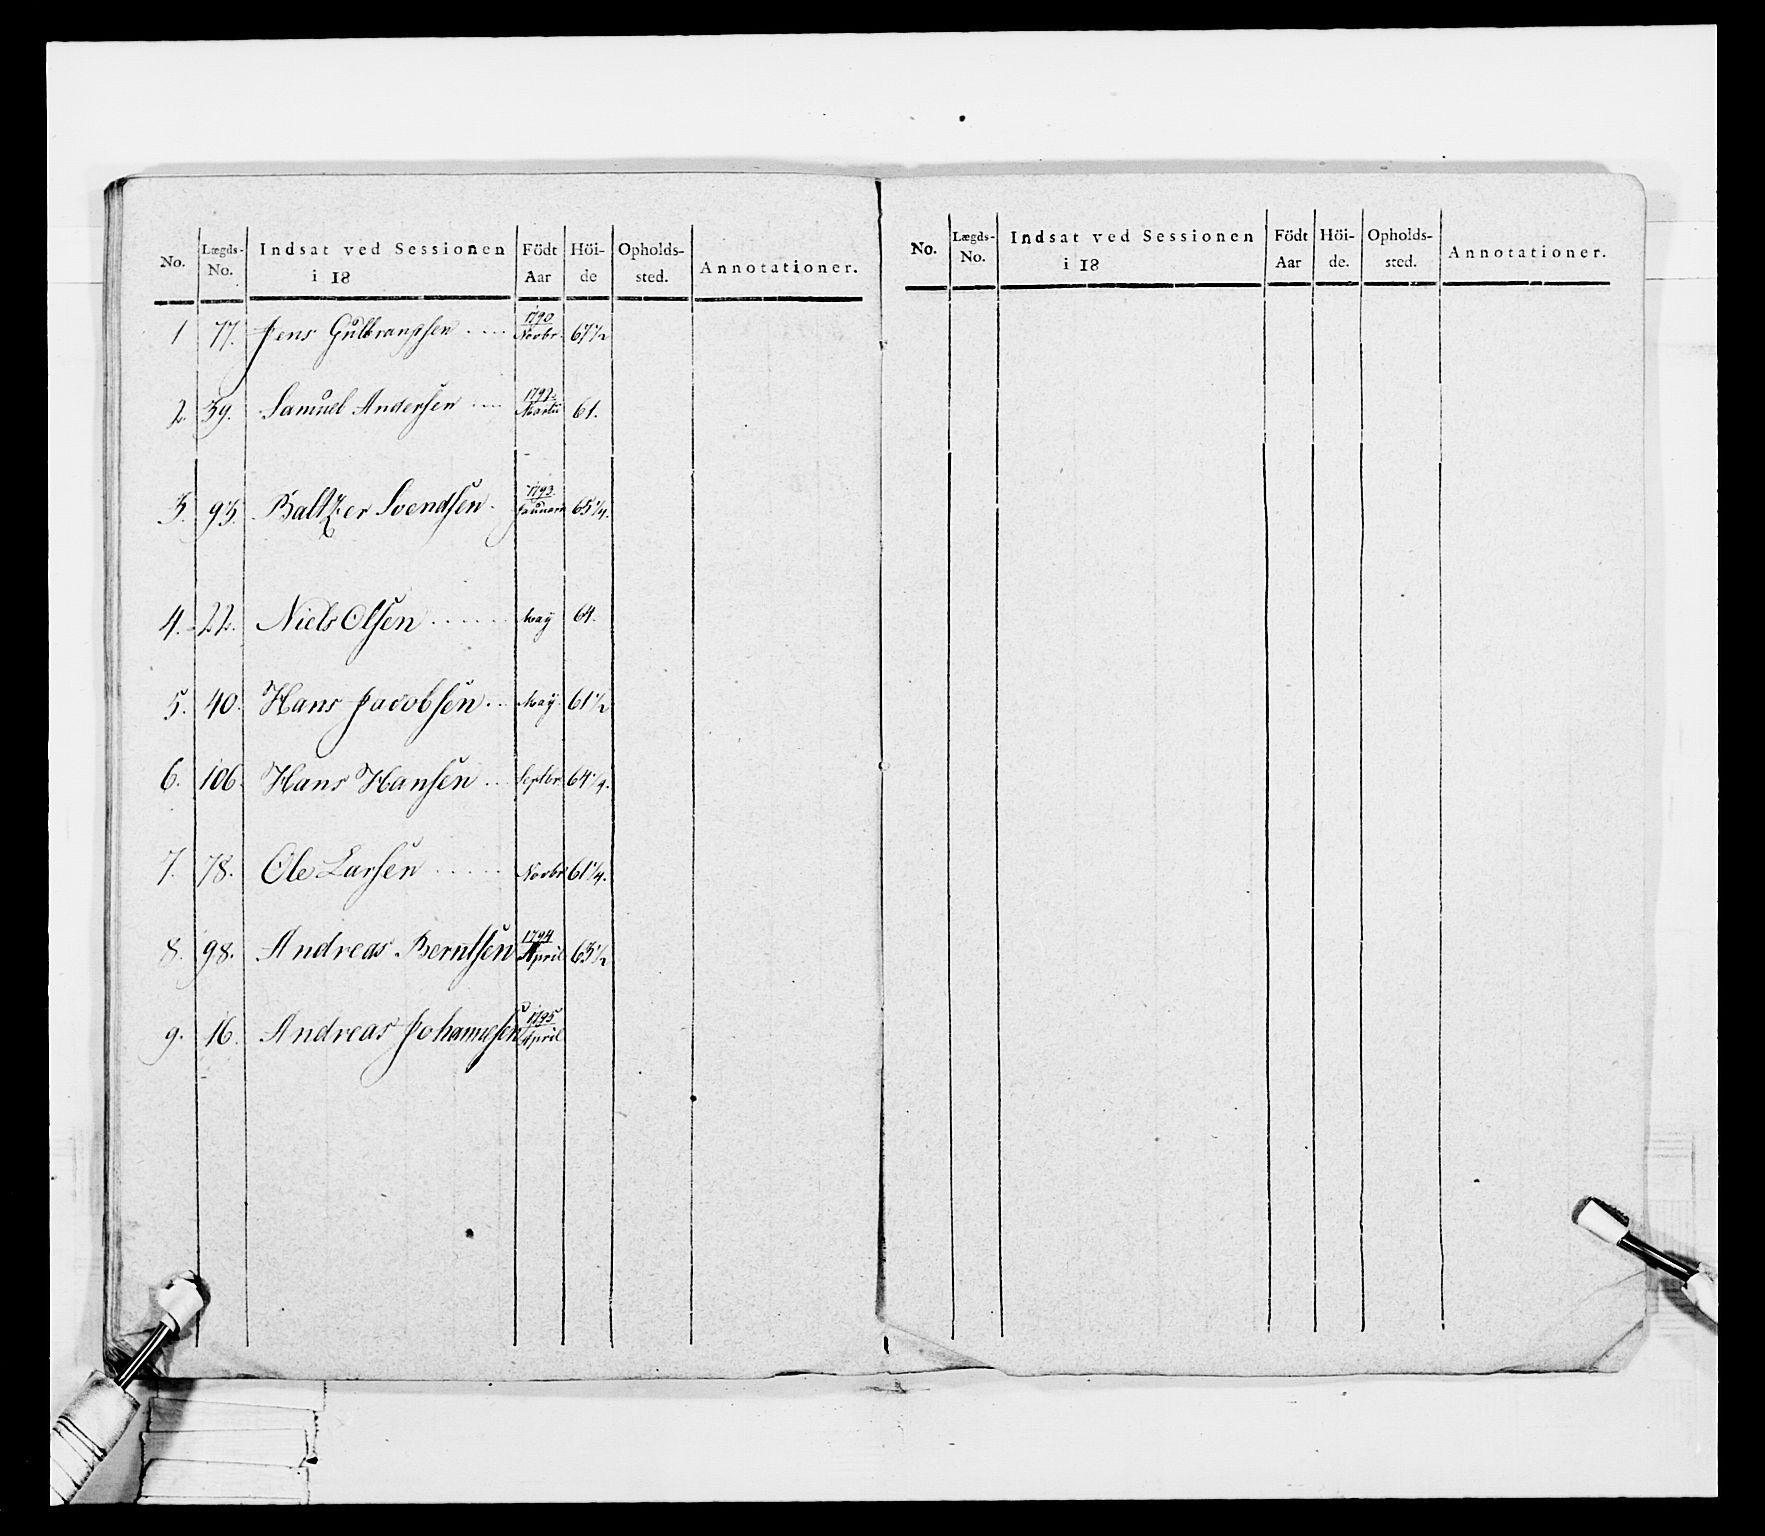 No. Lægds- No. Indsat ved Sessionen i 18 Födt Aar Höi- de Opholds- sted. Annotationer.
1 77. Jens Gulbranssen ..... 1790 Novbr. 67½
2. 39. Samuel Andersen .... 1792. Martii 61.
3. 93. Baltzer Svendsen. 1793. Januarii 65¼.
4. 22. Niels Olsen ...... May 64.
5. 40. Hans Jacobsen ... May 61½
6. 106. Hans Hansen .. Septbr 64¼.
7. 78. Ole Larsen ..... Novbr 61¼.
8. 98. Andreas Berntsen 1794 April 63½
9. 16. Andreas Johannesen 1795 April
No. Lægds- No. Indsat ved Sessionen i 18 Födt Aar Höi- de. Opholds- sted. Annotationer.